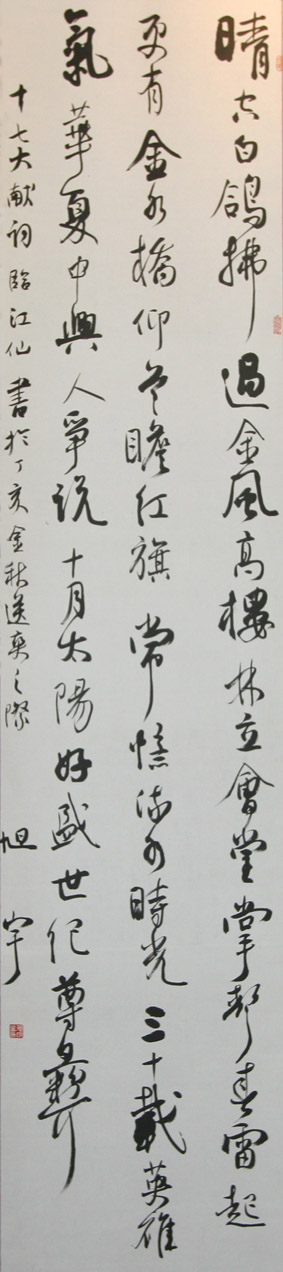 晴空白鸽拂過金風高樓林立會堂掌聲春雷起
更有金水橋仰首瞻红旗常憶流水時光三十載英雄
氣華夏中興人爭説十月太陽好盛世纪尊彝
十七大献词臨江仙書於丁亥金秋送爽之際
旭宇